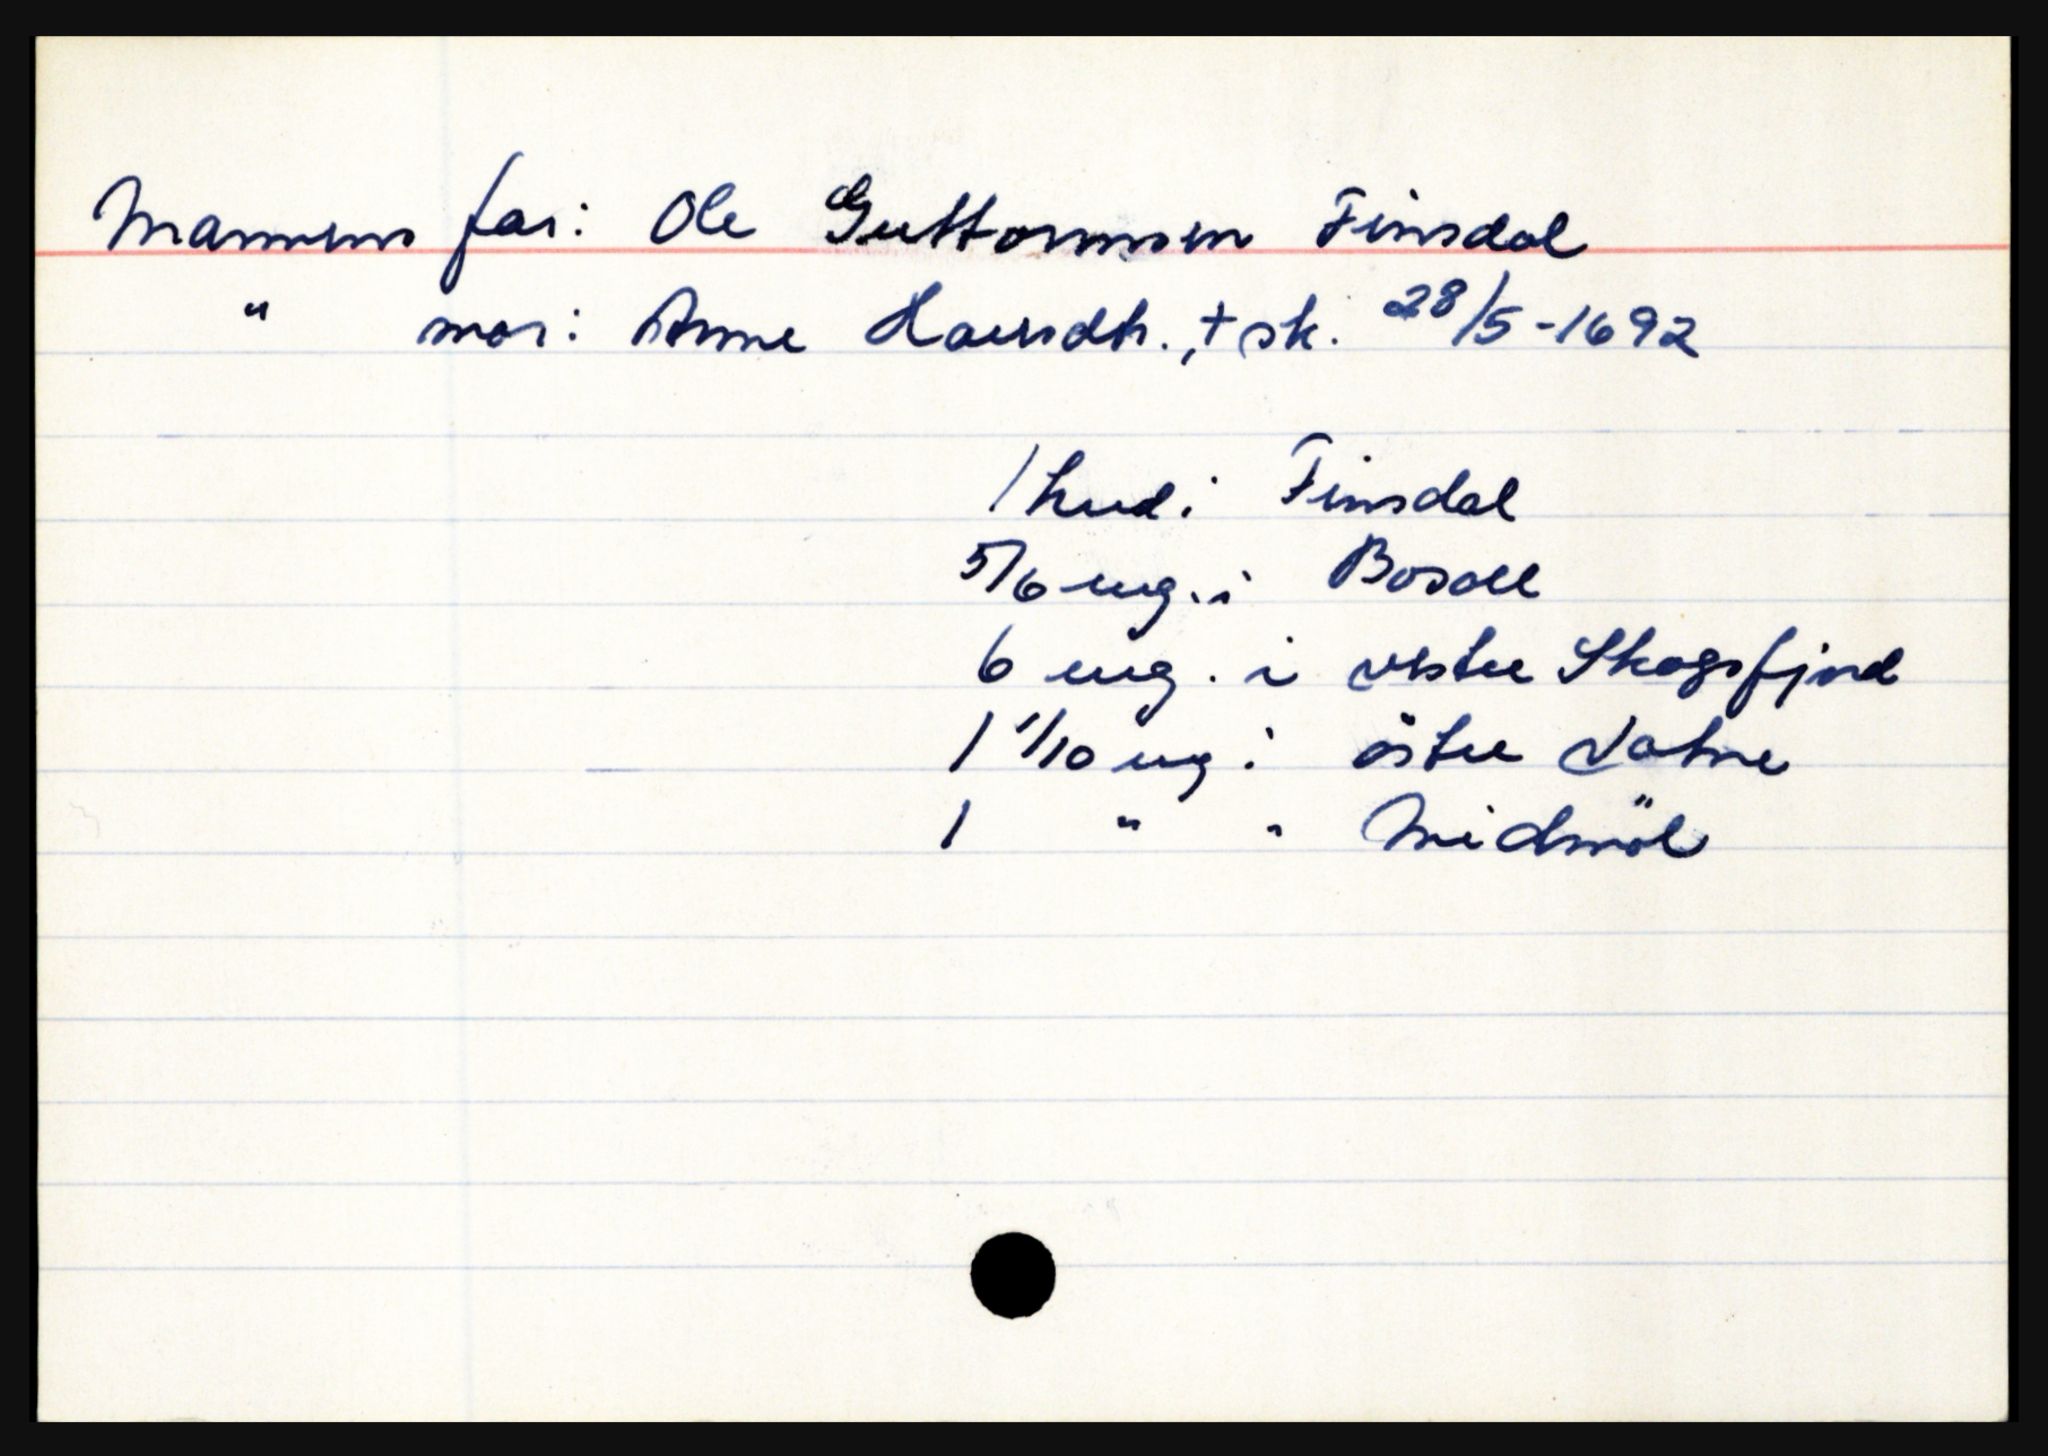 Mannens far: Ole Guttormsen Finsdal
" mor: Anne Haersdtr., + sk. 28/5-1692
1 hud i Finsdal
5/6 eng. i Bosdll
6 eng. i vestre Skogsfjord
1 1/10 eng i östre Vatne
1 " " Midmöl